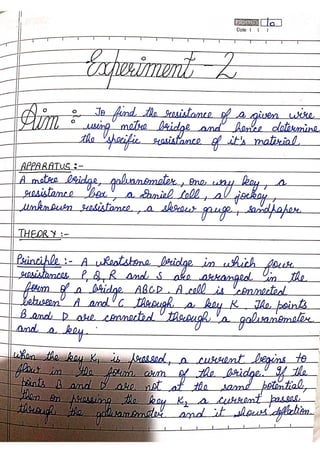 PAGE NO.: 10
Date : / /
Experiment - 2
Aim :- To find the resistance of a given wire
using metre bridge and hence determine
the specific resistance of it's material.
APPARATUS :-
A metre bridge, galvanometer, one way key, a
resistance box, a Daniel cell, a jockey,
unknown resistance, a skrew gauge, sandpaper
THEORY :-
Principle :- A wheatstone bridge in which four
resistances P, Q, R and S are arranged in the
form of a bridge ABCD. A cell is connected
between A and C through a key K. The points
B and D are connected through a galvanometer
and a key.
when the key K, is pressed, a current begins to
flow in the form arm of the bridge. If the
points B and D are not at the same potential,
then on pressing the key K2 a current passes
through the galvanometer and it shows deflection.